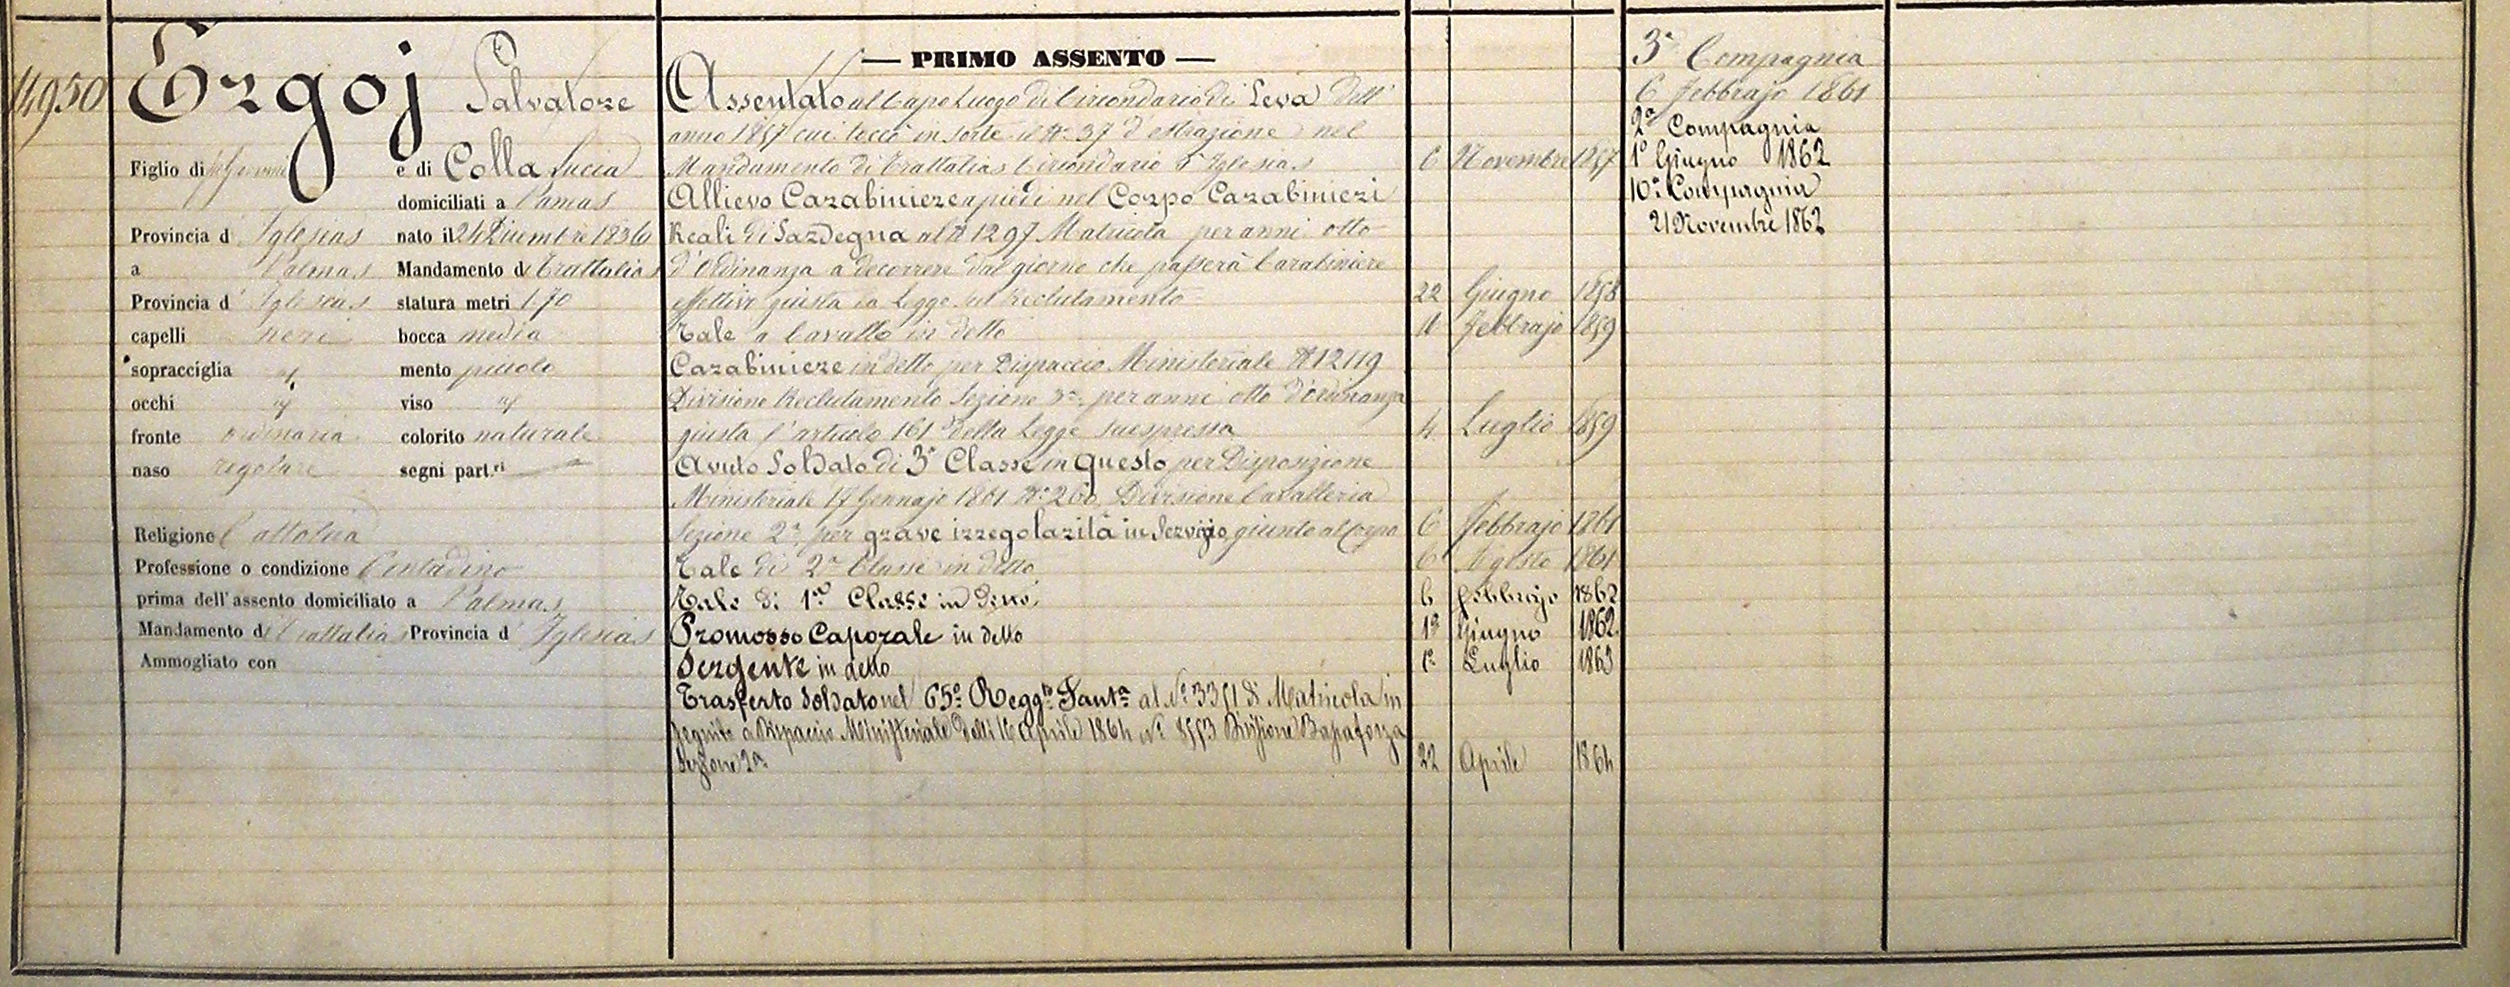 14950
Ergoj Salvatore
Figlio di fu Giovanni e di Colla Lucia
domiciliati a Palmas
Provincia d' Iglesias nato il 24 Dicembre 1836
a Palmas Mandamento di Trattalias
Provincia d' Iglesias statura metri 1.70
capelli neri bocca media
sopracciglia mento piccolo
occhi viso
fronte ordinaria colorito naturale
naso regolare segni part.ri
Religione Cattolica
Professione o condizione Contadino
prima dell'assento domiciliato a Palmas
Mandamento di Trattalias Provincia d' Iglesias
Ammogliato con
— PRIMO ASSENTO —
Assentato al Capo Luogo di Circondario di Leva dell'
anno 1857 cui toccò in sorte il N.° 37 d'estrazione nel
Mandamento di Trattalias Circondario d'Iglesias 6 Novembre 1857
Allievo Carabiniere a piedi nel Corpo Carabinieri
Reali di Sardegna al N. 1297 Matricola per anni otto
d'Ordinanza a decorrere dal giorno che passerà Carabiniere
effettivo giusta la Legge sul Reclutamento 22 Giugno 1858
Tale a Cavallo in detto 11 Febbrajo 1859
Carabiniere in detto per Dispaccio Ministeriale N. 12119
Divisione Reclutamento Sezione 3.a per anni otto d'ordinanza
giusta l'articolo 161 della Legge suespressa 4 Luglio 1859
Avuto Soldato di 3.a Classe in questo per Disposizione
Ministeriale 17 Gennajo 1861 N.° 260 Divisione Cavalleria
Sezione 2.a per grave irregolarità in Servizio giunto al Corpo 6 Febbrajo 1861
Tale di 2.a Classe in detto 6 Agosto 1861
Tale di 1.a Classe in detto 6 Febbrajo 1862
Promosso Caporale in detto 1° Giugno 1862
Sergente in detto 1° Luglio 1863
Trasferto Soldato nel 65.° Regg.to Fant.a al N.° 3351 di Matricola in
seguito a Dispaccio Ministeriale delli 16 Aprile 1864 N.° 8553 Divisione Bassaforza
Sezione 2.a 22 Aprile 1864
3.a Compagnia
6 Febbrajo 1861
2.a Compagnia
1° Giugno 1862
10.a Compagnia
21 Novembre 1862